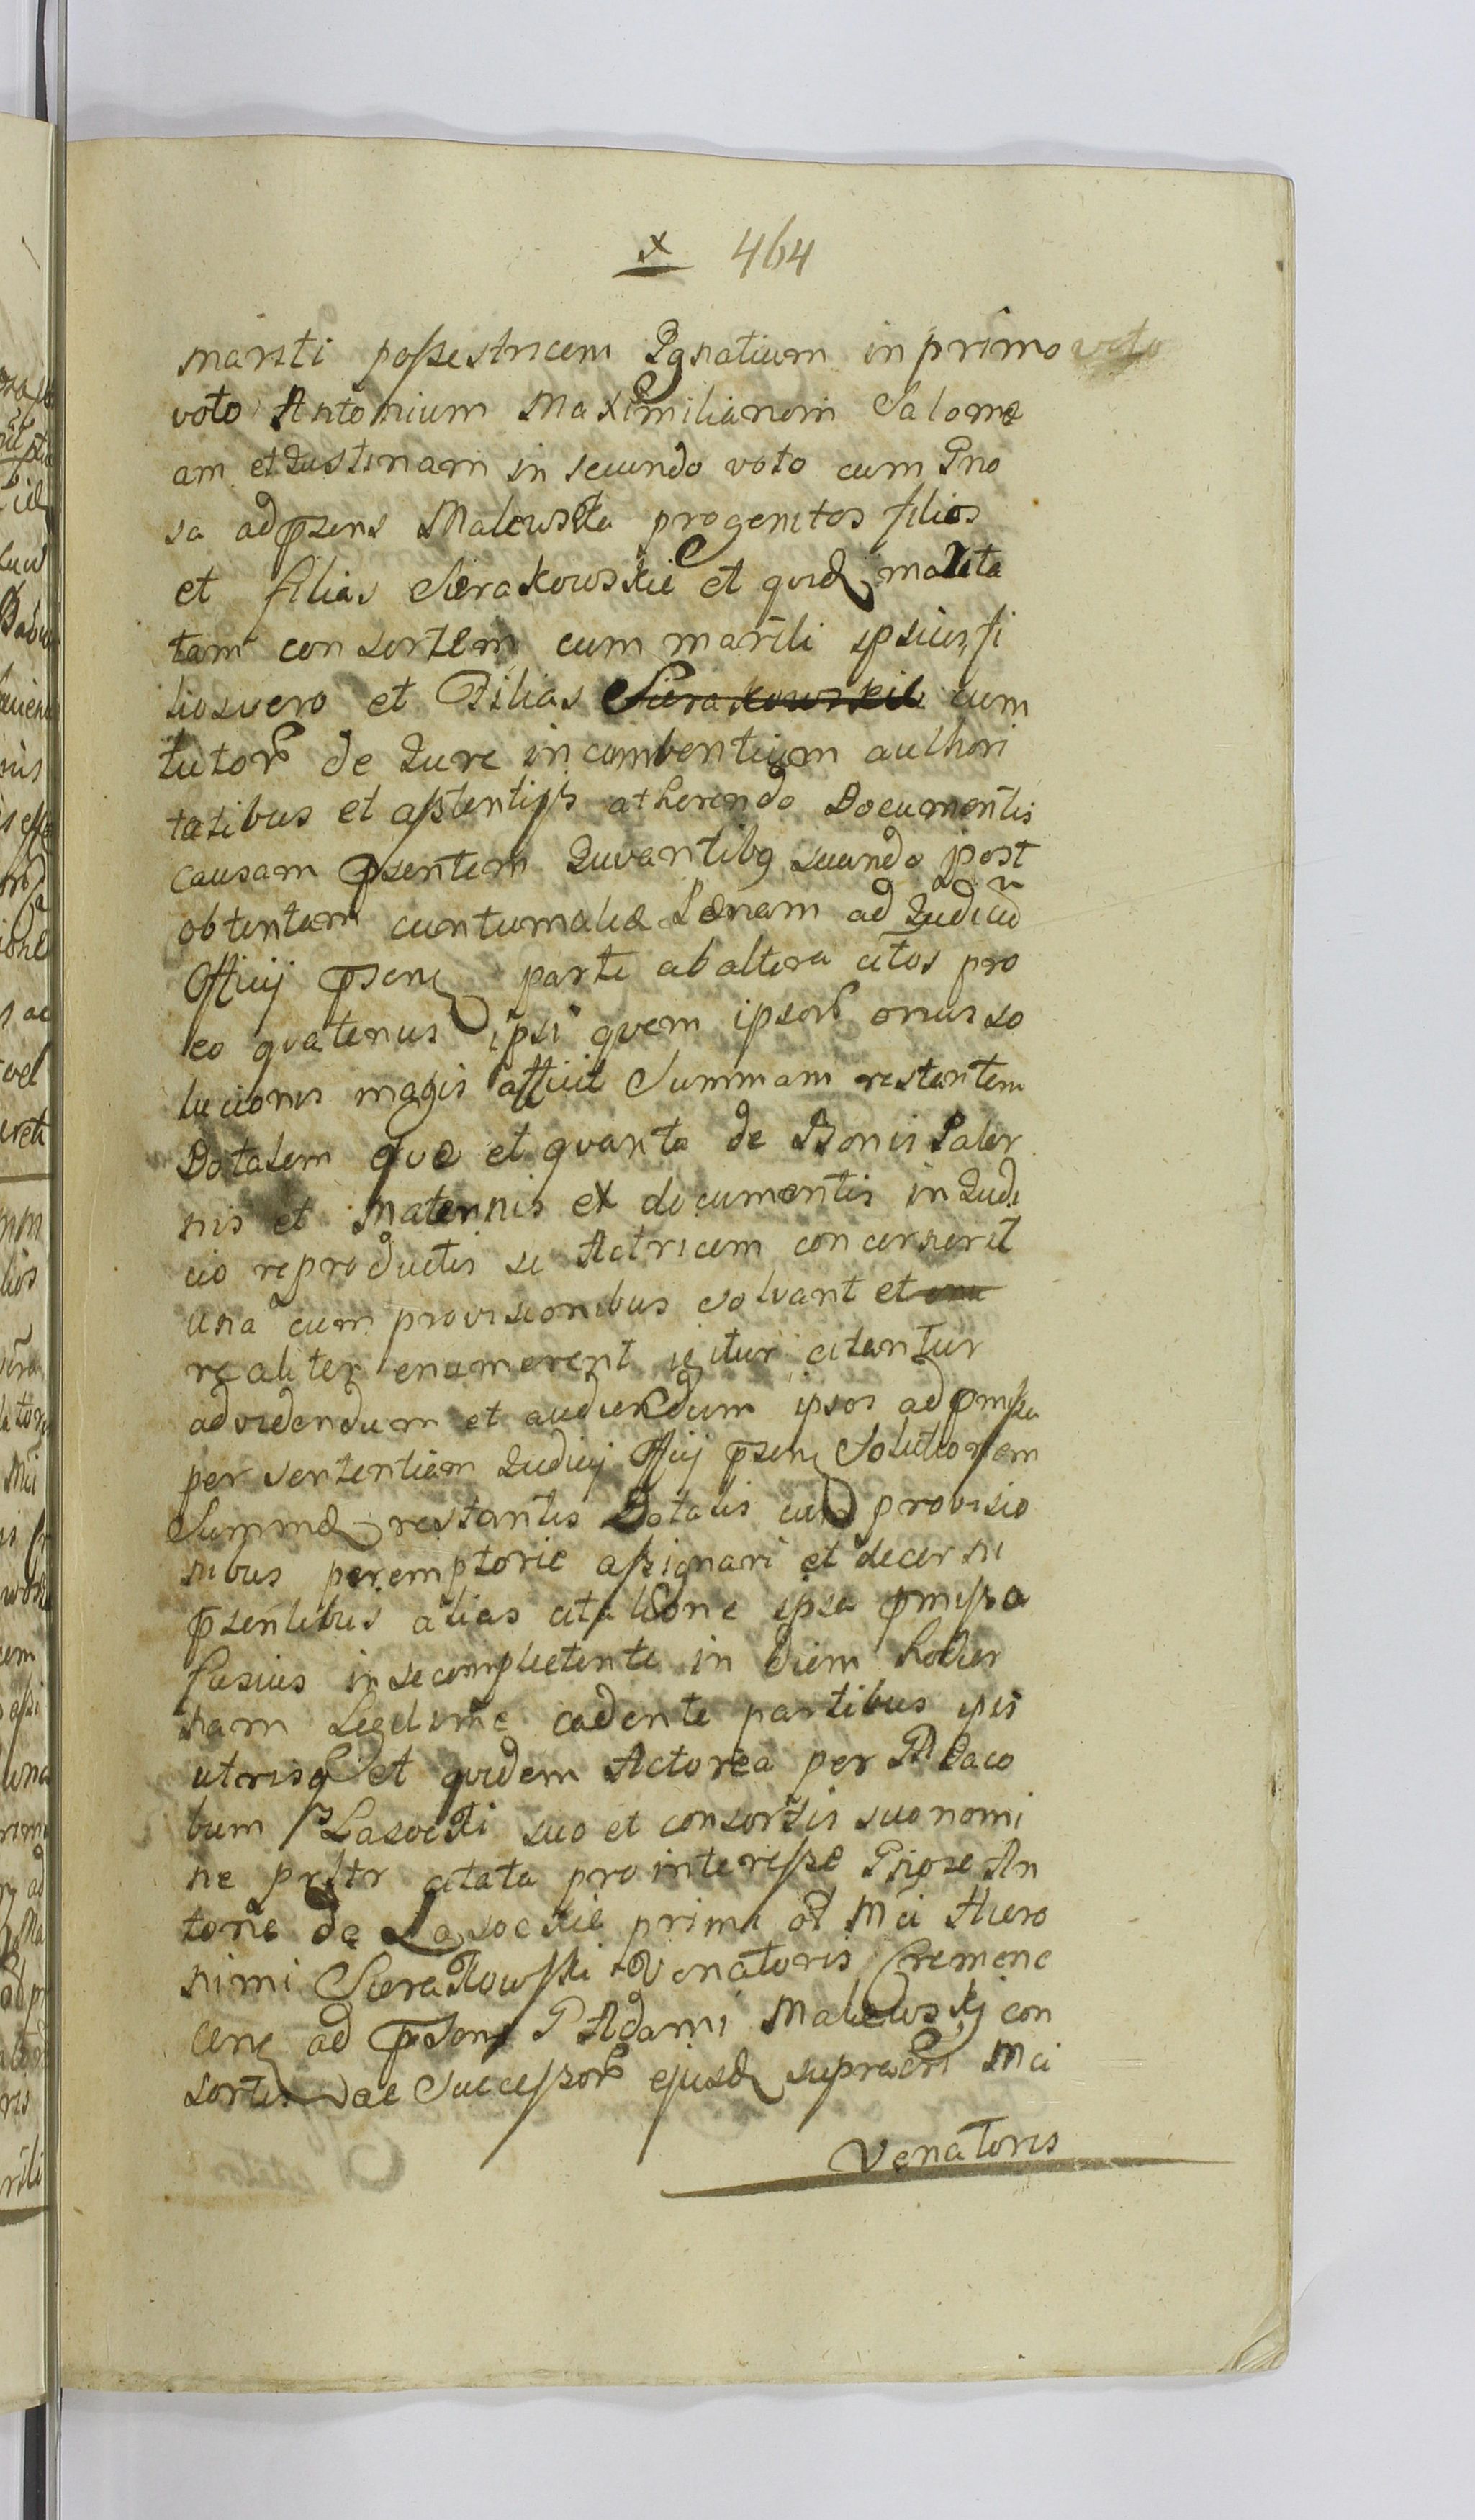 x 464
mariti possestricem Ignatium in primo voto
voto Antonium Maximilianem Salome
am et Justinam in secundo voto cum Gno
sa adpsens Malewska progenitos filios
et filias Sierakowskie et quid marita
tam consortem cum mariti ipsius, fi
liosvero et Filias Sierakowskie cum
tutor de Jure incumbentium authori
tatibus et assstentijs atherendo Documentis
causam psentem Juvantibq suundo post
obtentam cuntumatiæ Lænam ad Judiciu
Officij psenz parte ab altera citos pro
eo quatenus ipsi quem ipsor onus so
lucionis magis afficit Summam restantem
Dotalem que et quanta de Bonis Pater
nis et Maternis ex documentis in Judi
cio reproductis se Actricem concernerit
una cum provisionibus solvant et
realiter enumerent igitur citantur
advidendum et audiendum ipsos ad pmissa
per sententiam Judicij Officij psenz Solutionem
Summæ restantis Dotalis cum provisio
nibus peremptorie assignari et decerni
psentibus alias citatione ipsa pmissa
fusius insecomplectente in diem hodier
nam Legitime cadente partibus ipis
utrisq et quidem Actorea per P Jaco
bum Lasocki suo et consortis suo nomi
ne prltr citata prointeresse Gnose An
tonie de Lasockie primi od Mci Hiero
nimi Sierakowski Venatoris Cremene
cenz ad psens P Adami Malewskj con
sortis ac Successor ejusd supradti Mci
Venatoris